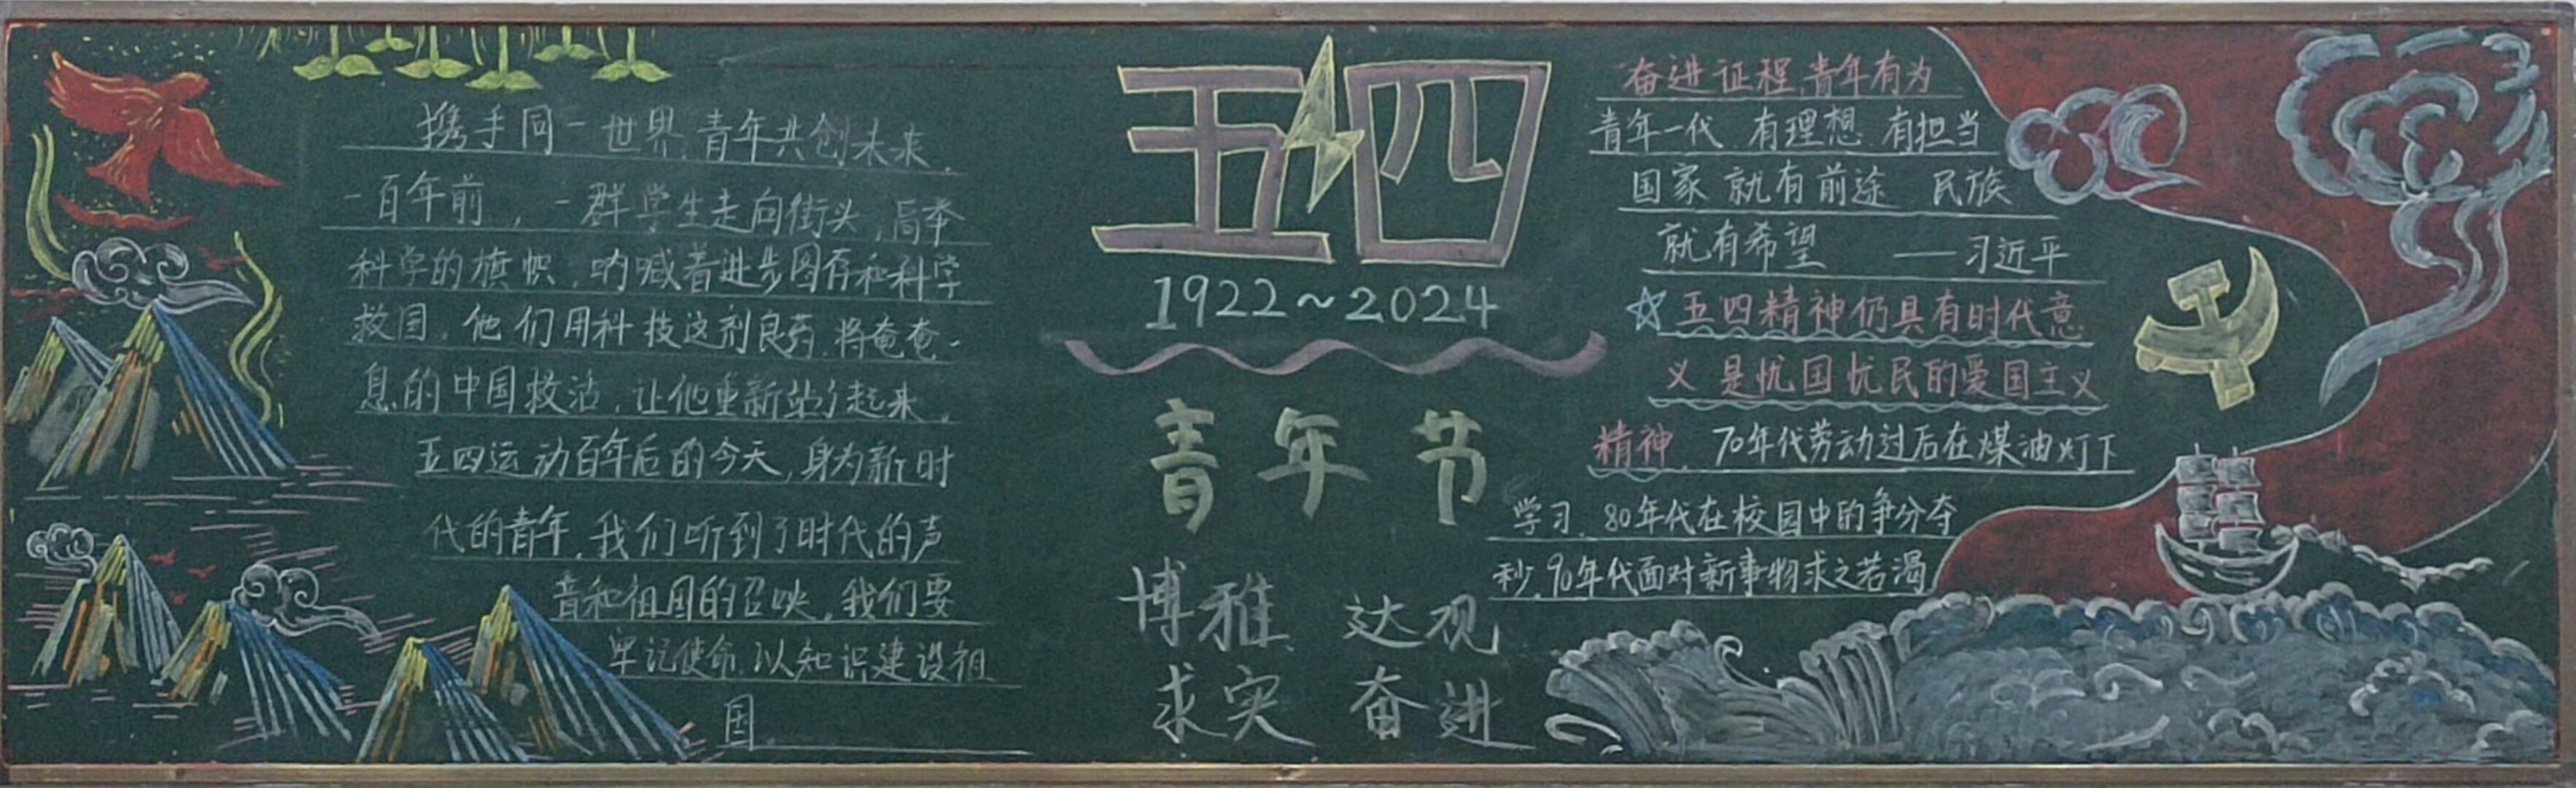 携手同一世界,青年共创未来.
一百年前,一群学生走向街头,高举
科学的旗帜,呐喊着进步图存和科学
救国.他们用科技这剂良药.将奄奄一
息的中国救活,让他重新站了起来。
五四运动百年后的今天,身为新时
代的青年,我们听到了时代的声
音和祖国的召唤,我们要
牢记使命.以知识建设祖
国
五四
1922~2024
青年节
博雅 达观
求实 奋进
奋进征程,青年有为
青年一代 有理想 有担当
国家 就有前途 民族
就有希望 ——习近平
☆五四精神仍具有时代意
义 是忧国忧民的爱国主义
精神. 70年代劳动过后在煤油灯下
学习. 80年代在校园中的争分夺
秒.90年代面对新事物求之若渴